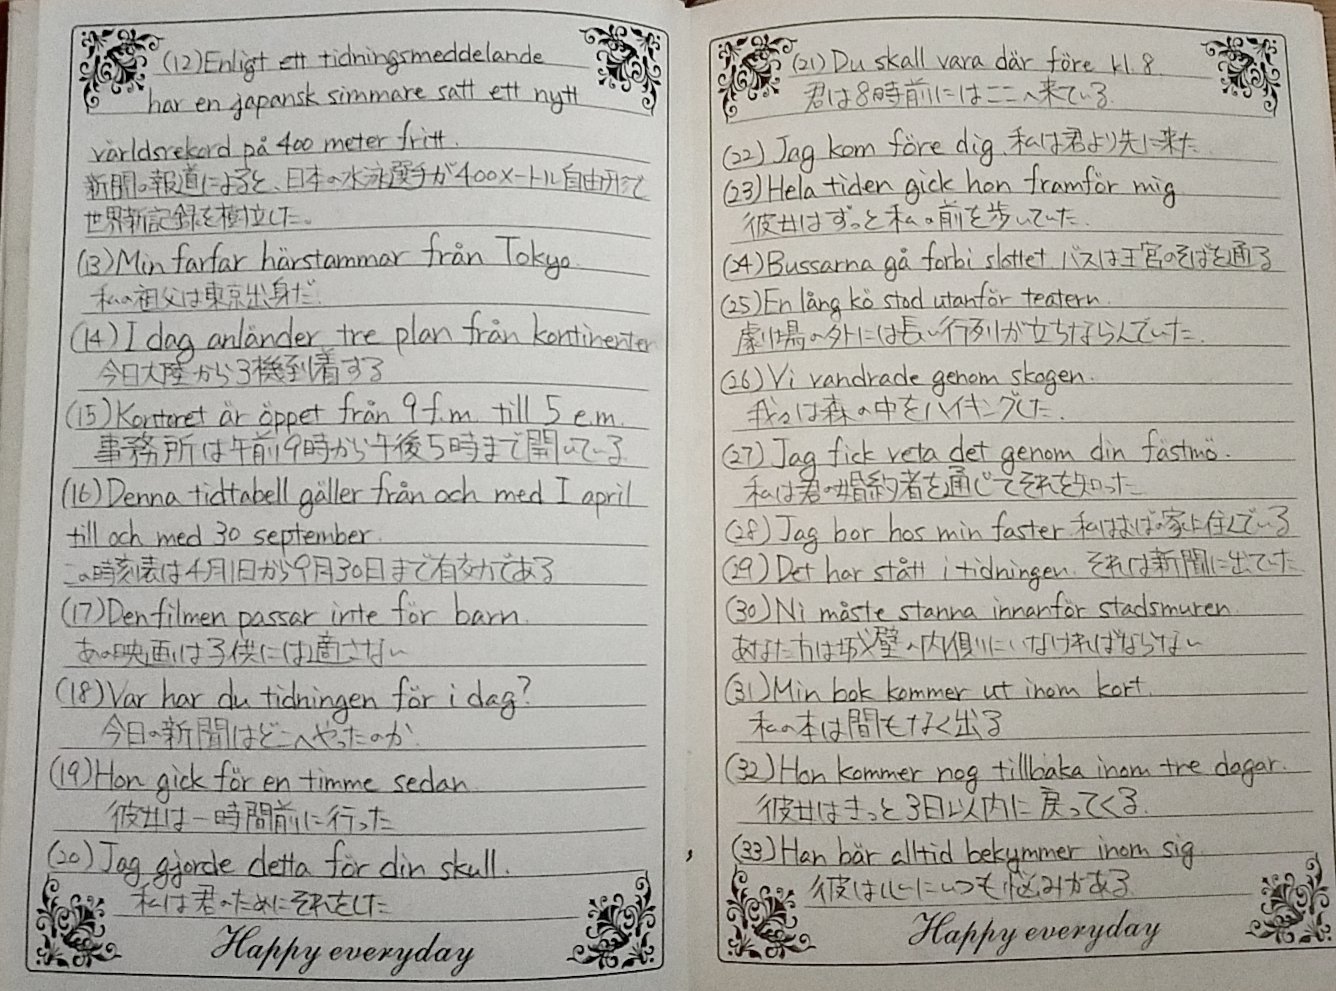 (12) Enligt ett tidningsmeddelande
har en japansk simmare satt ett nytt
världsrekord på 400 meter fritt.
新聞の報道によると、日本の水泳選手が400メートル自由形で
世界新記録を樹立した。
(13) Min farfar härstammar från Tokyo.
私の祖父は東京出身だ.
(14) I dag anländer tre plan från kontinenten
今日大陸から3機到着する
(15) Kontoret är öppet från 9 f.m. till 5 e.m.
事務所は午前9時から午後5時まで開いている
(16) Denna tidtabell gäller från och med 1 april
till och med 30 september.
この時刻表は4月1日から9月30日まで有効である
(17) Den filmen passar inte för barn.
あの映画は子供には適さない
(18) Var har du tidningen för i dag?
今日の新聞はどこへやったのか.
(19) Hon gick för en timme sedan.
彼女は一時間前に行った
(20) Jag gjorde detta för din skull.
私は君のためにそれをした
Happy everyday
(21) Du skall vara där före kl 8.
君は8時前にはここへ来ている.
(22) Jag kom före dig. 私は君より先に来た.
(23) Hela tiden gick hon framför mig
彼女はずっと私の前を歩いていた.
(24) Bussarna gå forbi slottet. バスは王宮のそばを通る
(25) En lång kö stod utanför teatern.
劇場の外には長い行列が立ちならんでいた.
(26) Vi vandrade genom skogen.
我々は森の中をハイキングした.
(27) Jag fick veta det genom din fästmö.
私は君の婚約者を通じてそれを知った
(28) Jag bor hos min faster. 私はおばの家に住んでいる
(29) Det har stått i tidningen. それは新聞に出ていた
(30) Ni måste stanna innanför stadsmuren.
あなた方は城壁の内側にいなければならない
(31) Min bok kommer ut inom kort.
私の本は間もなく出る
(32) Hon kommer nog tillbaka inom tre dagar.
彼女はきっと3日以内に戻ってくる.
(33) Han bär alltid bekymmer inom sig.
彼は心にいつも悩みがある
Happy everyday